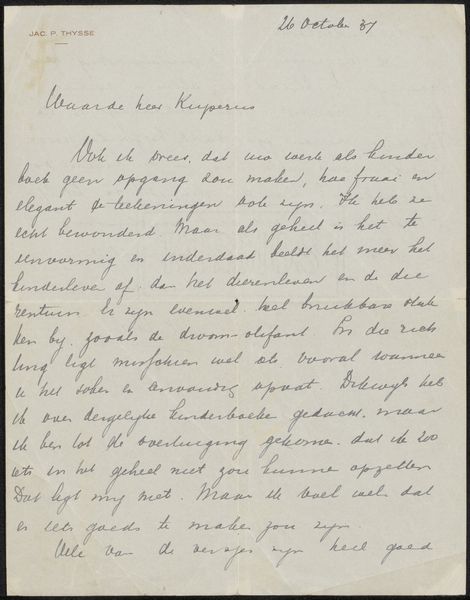 JAC. P. THYSSE
26 October 37
Waarde heer Kuperus
Ook ik vrees, dat uw werk als kinder
boek geen opgang zou maken, hoe fraai en
elegant de teekeningen ook zijn. Ik heb ze
echt bewonderd. Maar als geheel is het te
eenvormig en inderdaad beeldt het meer het
kinderleven af dan het dierenleven en de die
rentuin. Er zijn evenwel heel bruikbare stuk
ken bij, zooals de droom-olifant. In die rich
ting ligt misschien wel iets vooral wanneer
u het sober en eenvoudig opvat. Dikwijls heb
ik over dergelijke kinderboeken gedacht, maar
ik ben tot de overtuiging gekomen, dat ik zoo
iets in het geheel niet zou kunnen opzetten
Dat ligt mij niet. Maar ik voel wel dat
er iets goeds te maken zou zijn.
Vele van de versjes zijn heel goed